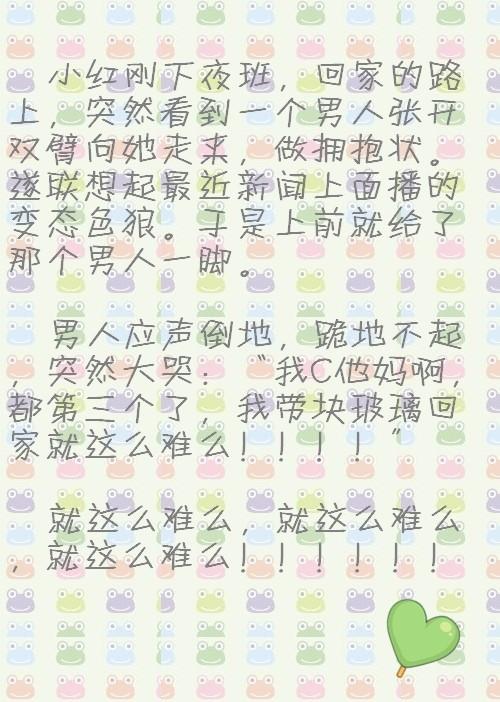 小红刚下夜班，回家的路
上，突然看到一个男人张开
双臂向她走来，做拥抱状。
遂联想起最近新闻上面播的
变态色狼。于是上前就给了
那个男人一脚。
男人应声倒地，跪地不起
，突然大哭：“我C他妈啊，
都第三个了，我带块玻璃回
家就这么难么！！！！”
就这么难么，就这么难么
，就这么难么！！！！！！